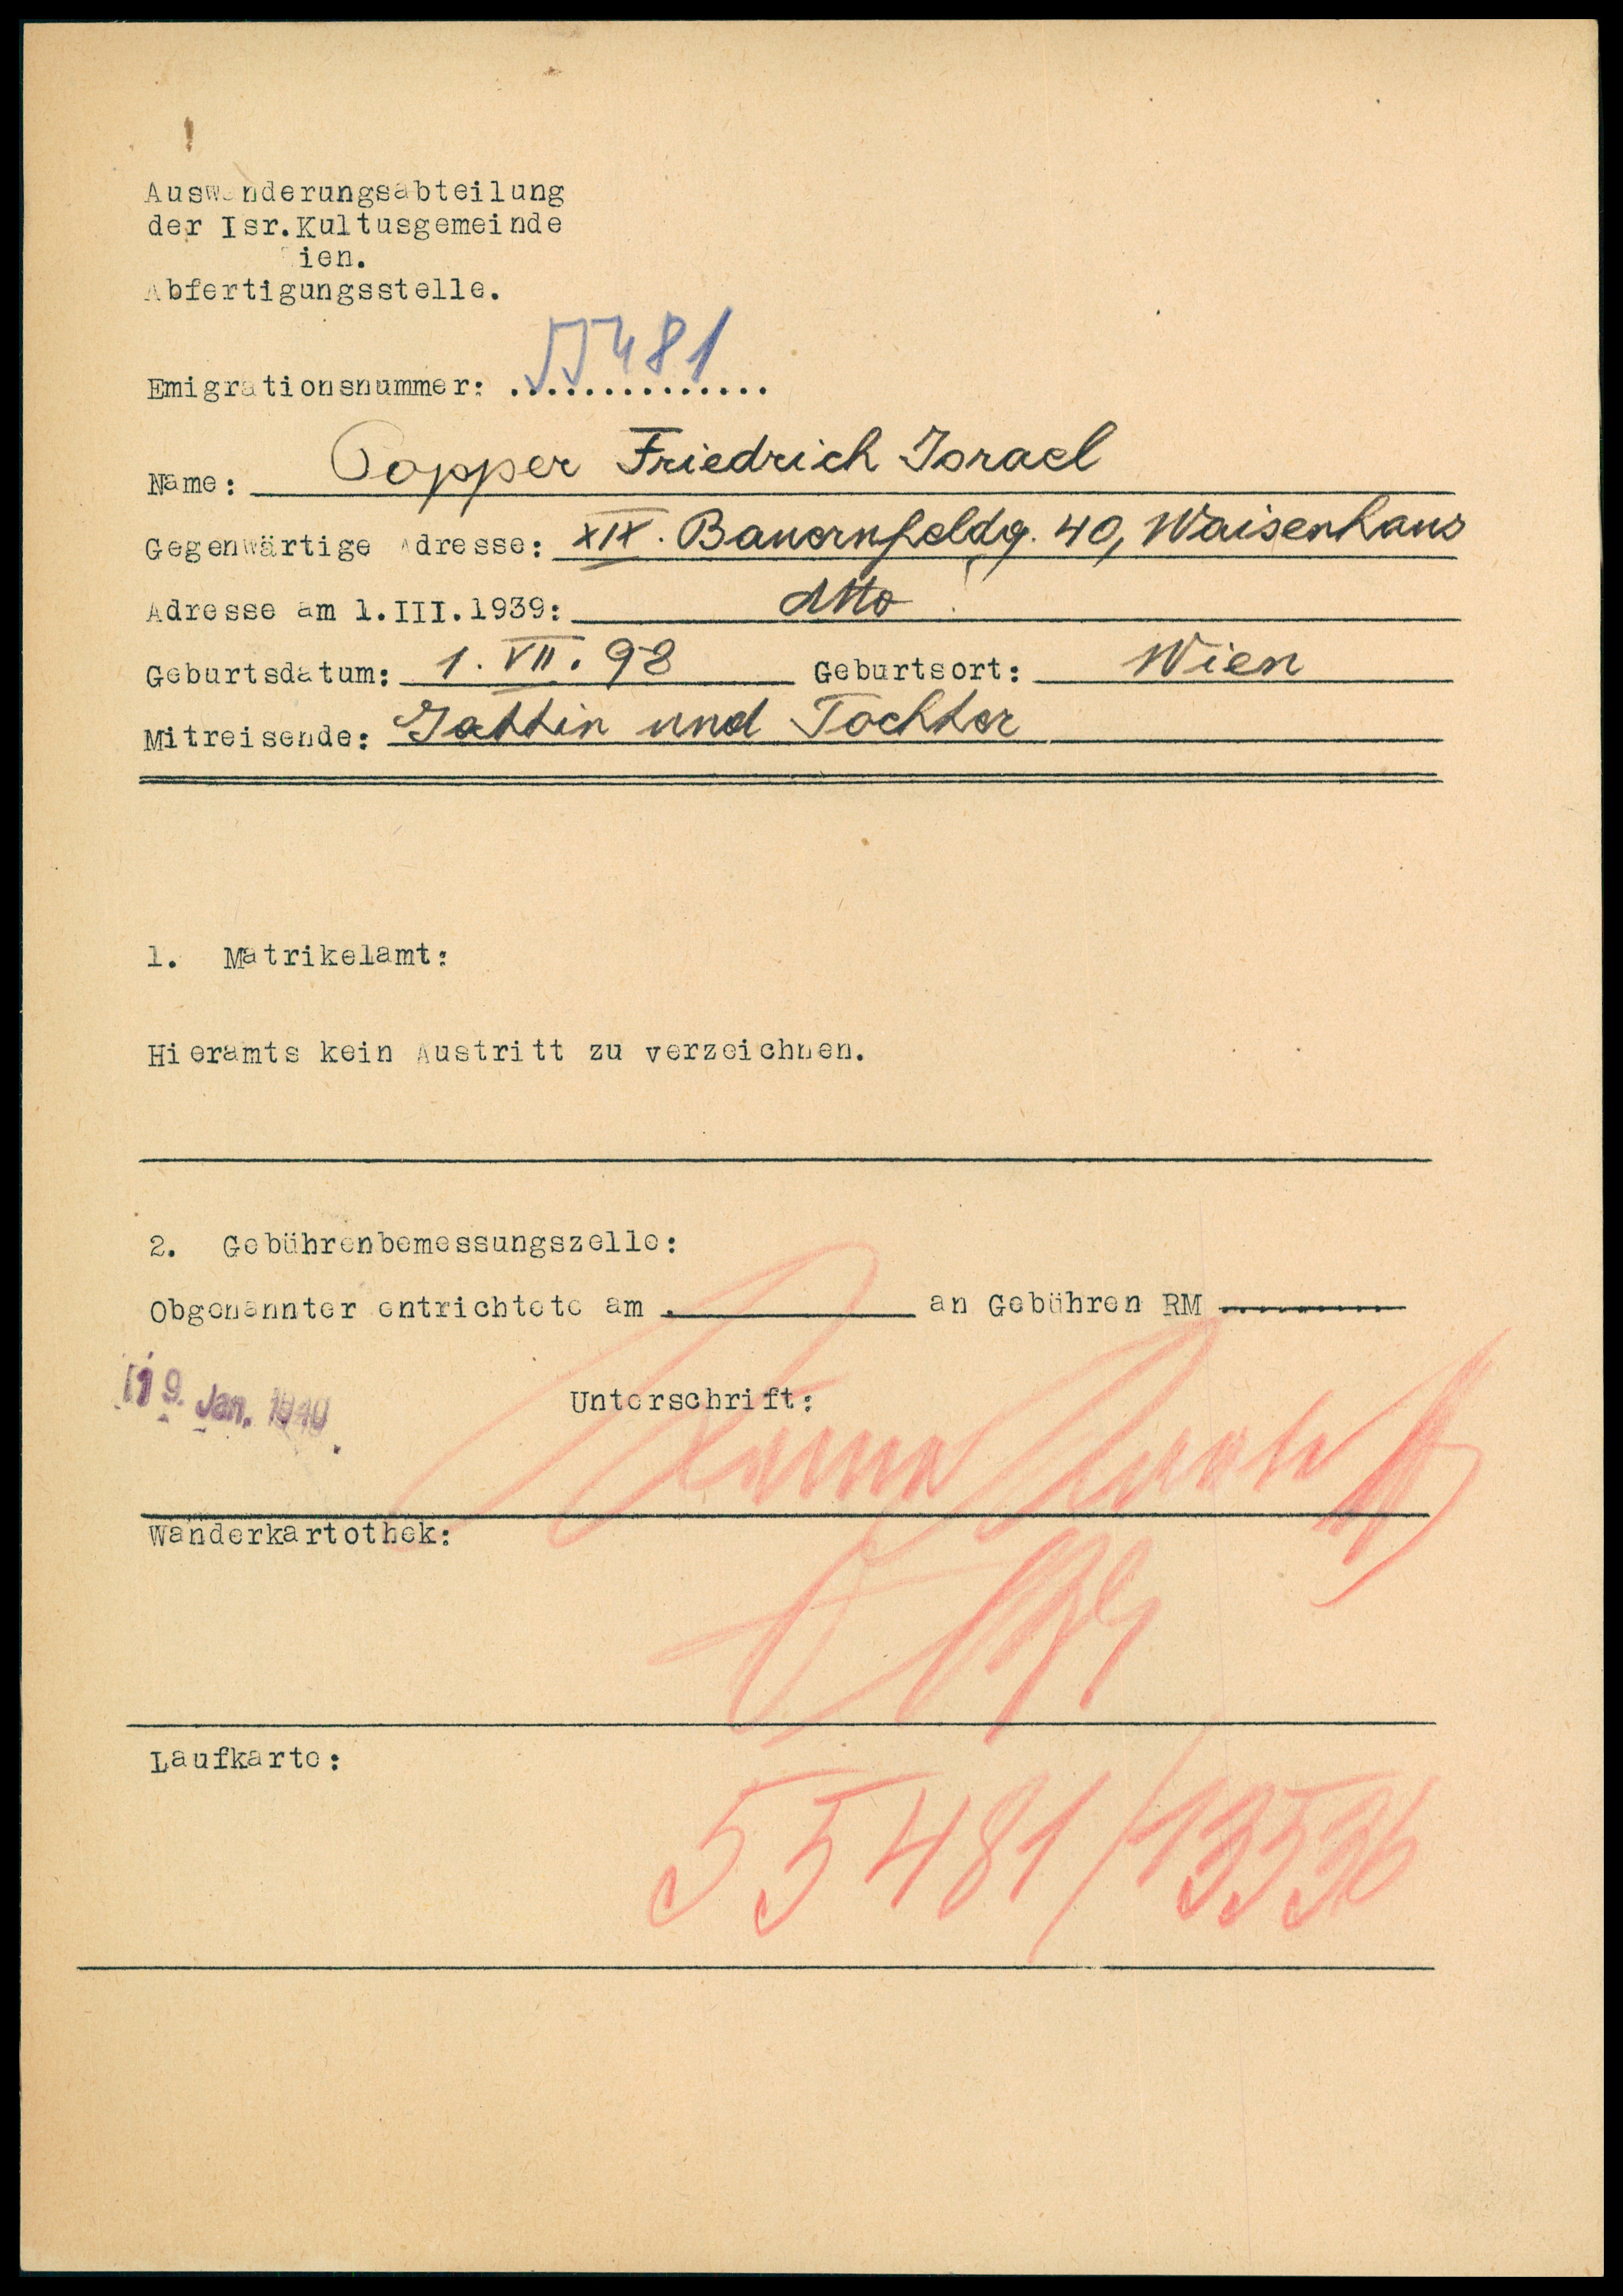 Auswanderungsabteilung
der Isr.Kultusgemeinde
Wien.
Abfertigungsstelle.
Emigrationsnummer: 55481
Name: Popper Friedrich Israel
Gegenwärtige Adresse: XIX. Bauernfeldg. 40, Waisenhaus
Adresse am 1.III.1939: dtto
Geburtsdatum: 1. VII. 98 Geburtsort: Wien
Mitreisende: Gattin und Tochter
1. Matrikelamt:
Hieramts kein Austritt zu verzeichnen.
2. Gebührenbemessungszelle:
Obgenannter entrichtete am an Gebühren RM
19. Jan. 1940
Unterschrift:
Wanderkartothek:
Laufkarte:
55481/13536